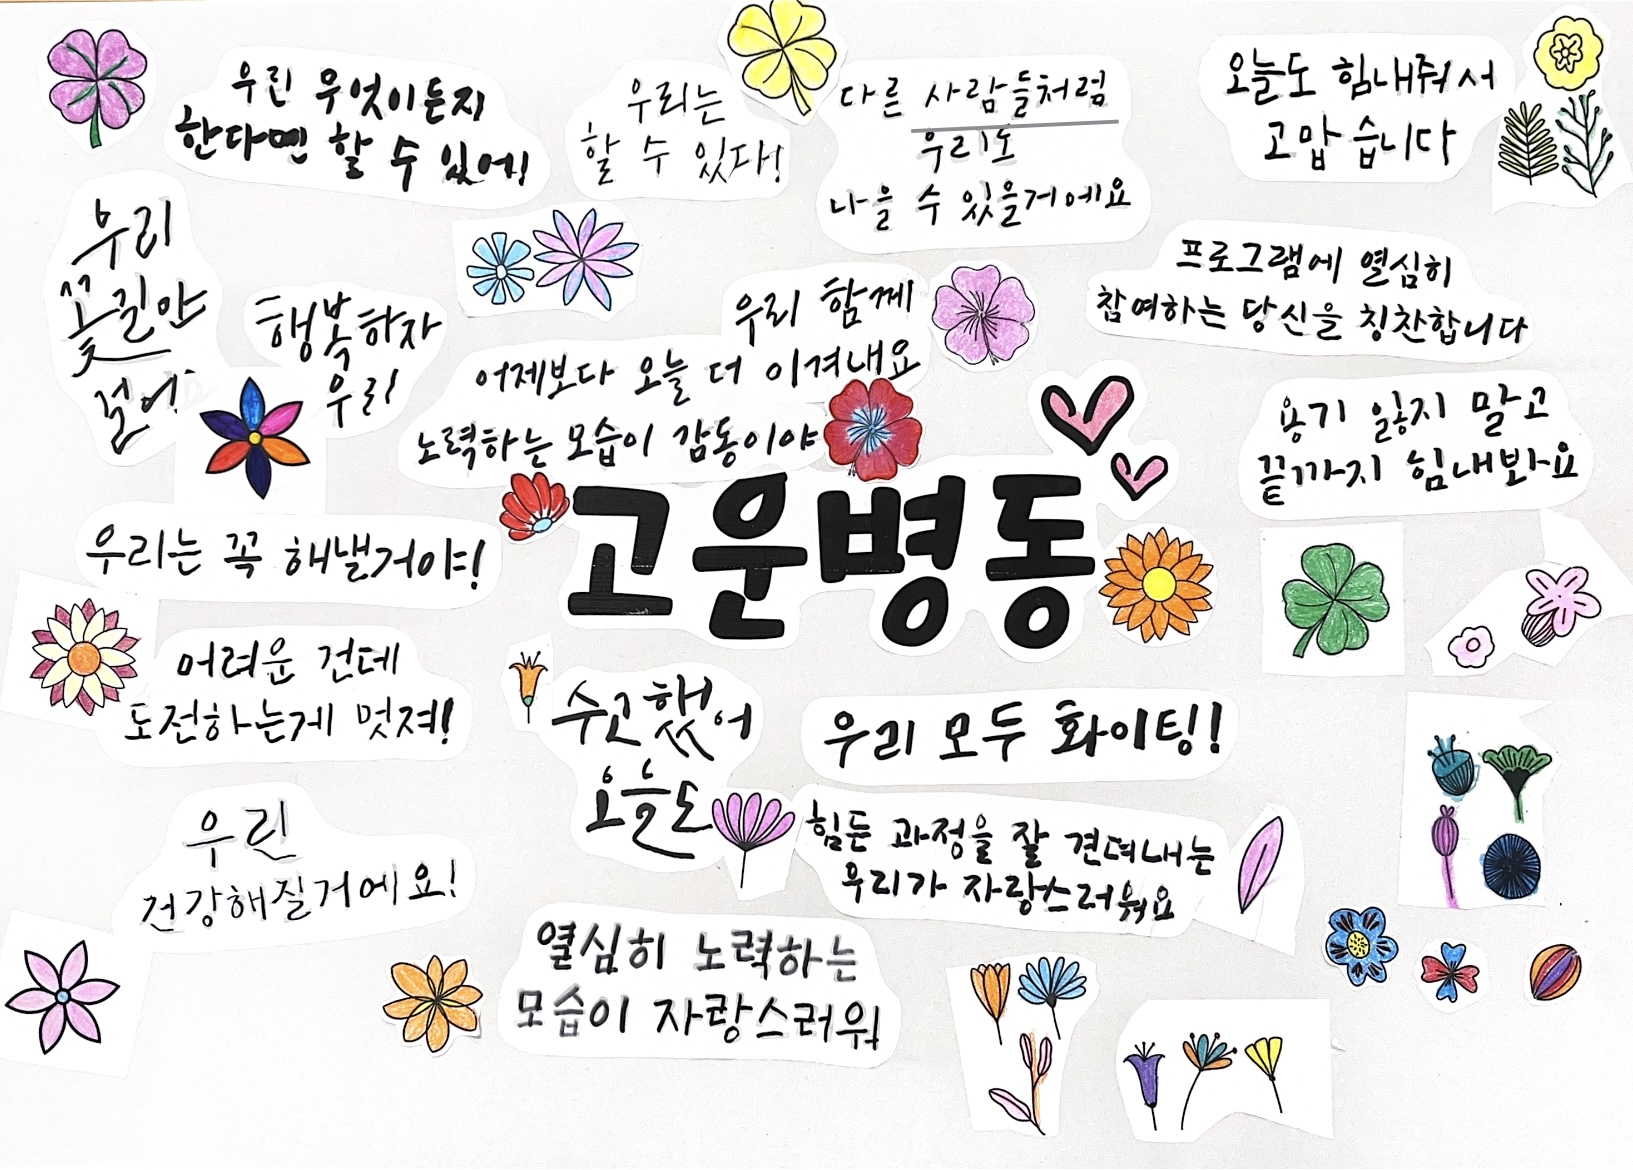 우린 무엇이든지
한다면 할 수 있어!
우리는
할 수 있다!
다른 사람들처럼
우리도
나을 수 있을거에요
오늘도 힘내줘서
고맙습니다
우리
꽃길만
걸어
행복하자
우리
우리 함께
어제보다 오늘 더 이겨내요
노력하는 모습이 감동이야
프로그램에 열심히
참여하는 당신을 칭찬합니다
용기 잃지 말고
끝까지 힘내봐요
고운병동
우리는 꼭 해낼거야!
어려운 건데
도전하는게 멋져!
수고했어
오늘도
우리 모두 화이팅!
힘든 과정을 잘 견뎌내는
우리가 자랑스러워요
우린
건강해질거에요!
열심히 노력하는
모습이 자랑스러워